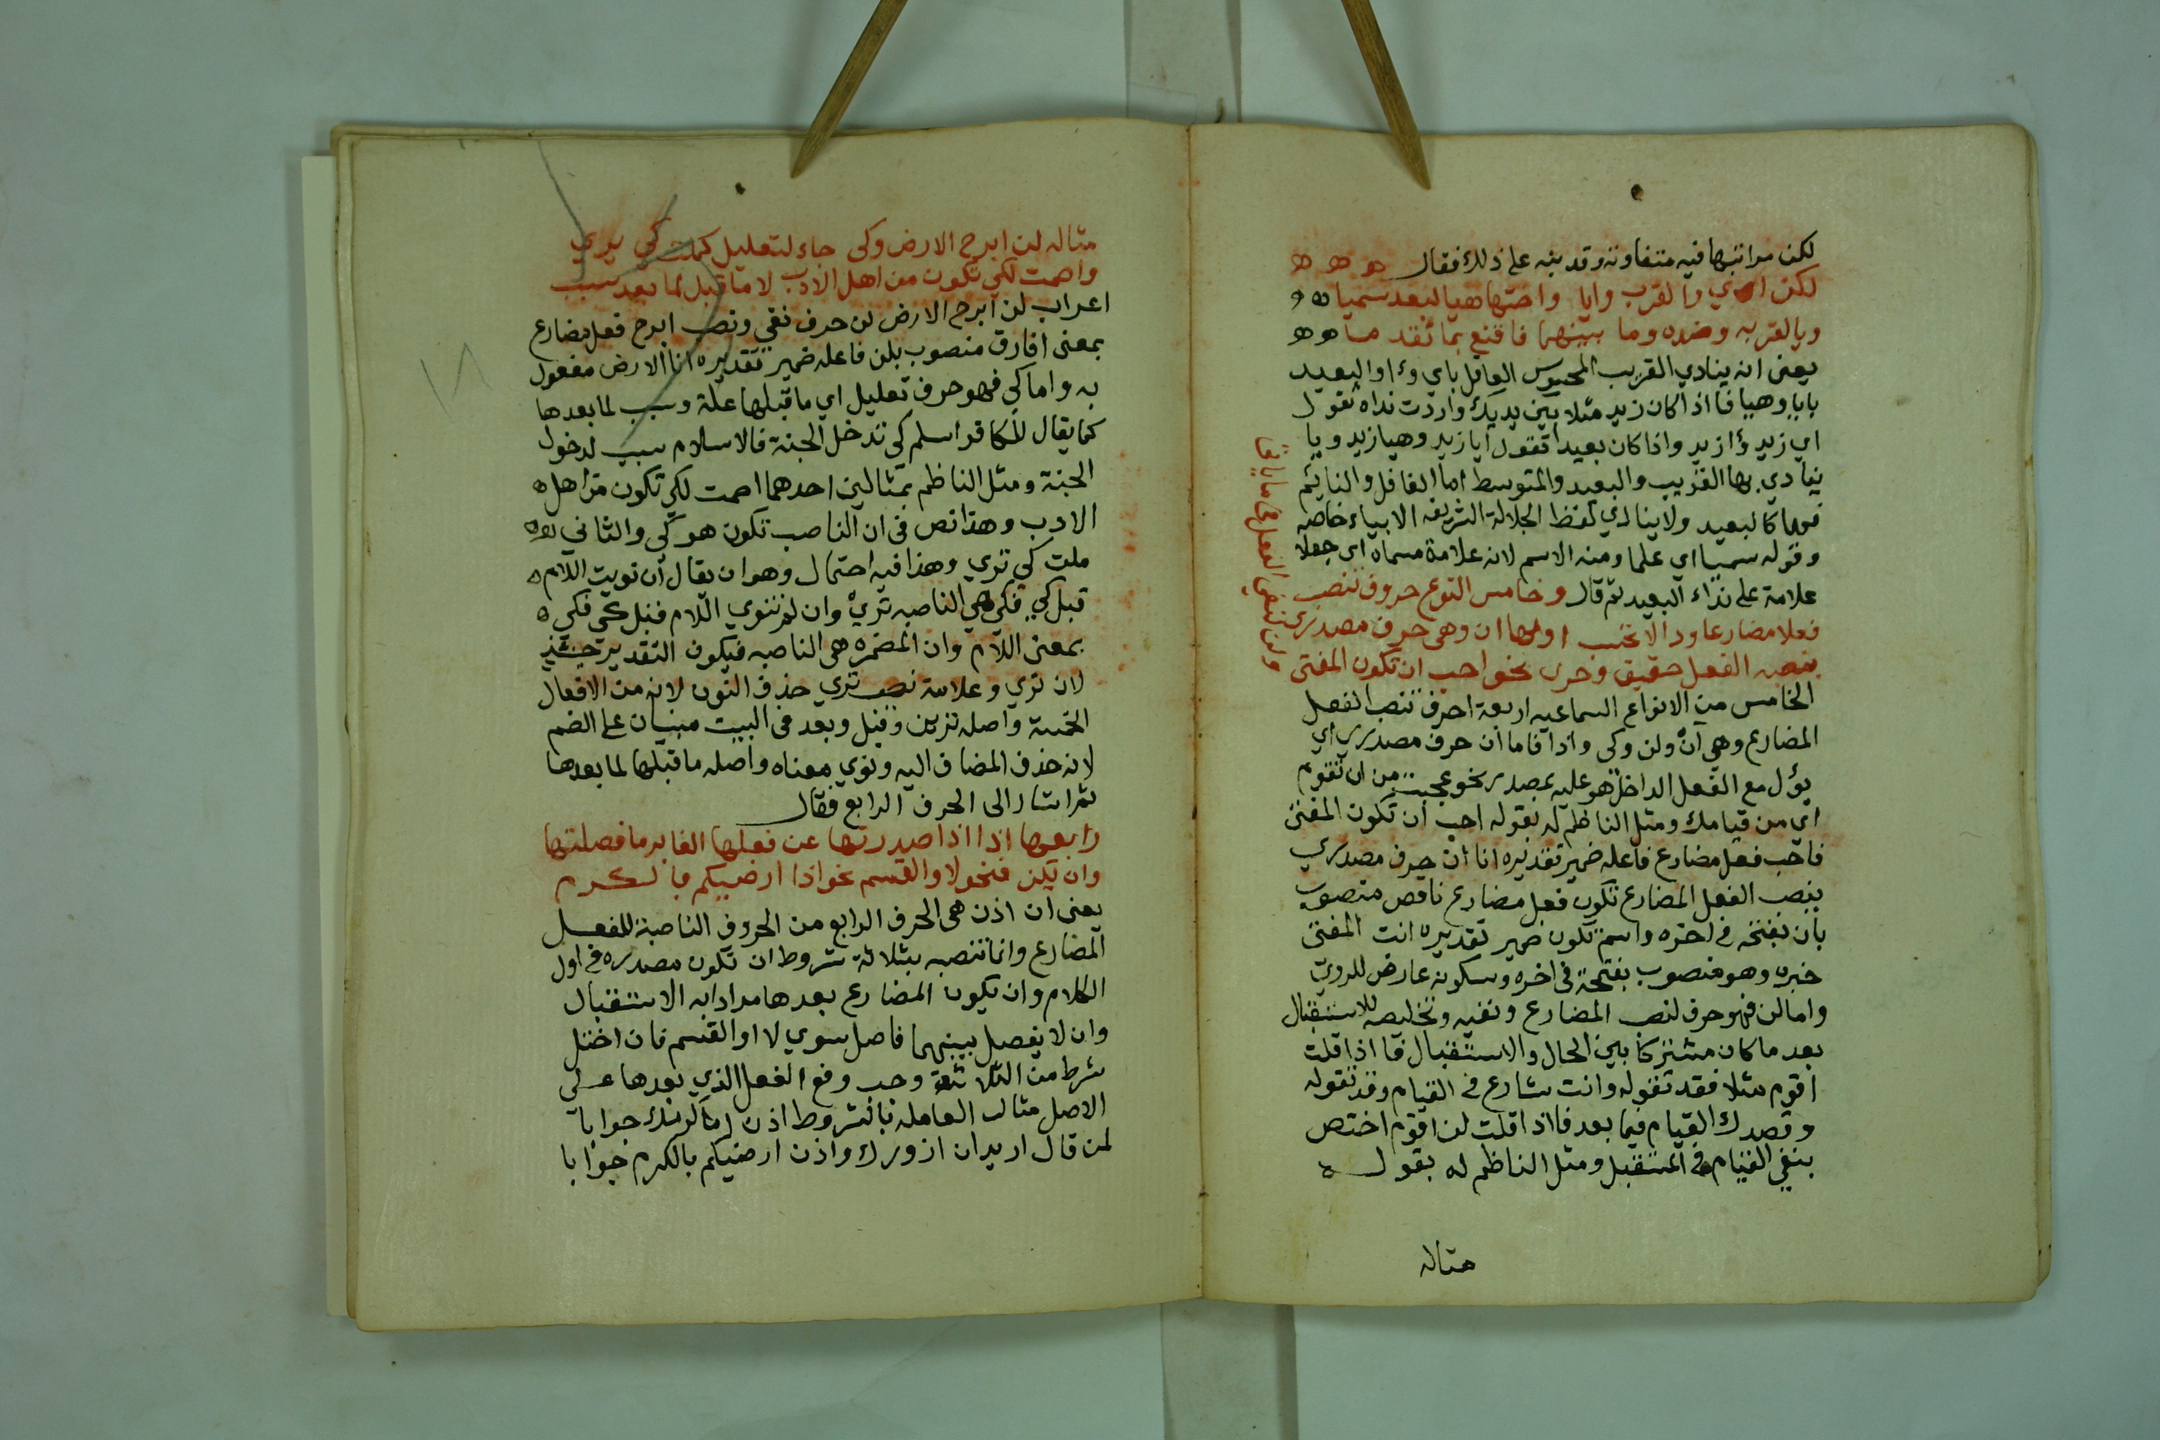 لكن مراتبها فيه متفاوته وقد بينه على ذلك فقال ه ه ه
لكن اي والقرب وايا واختها هيا لبعد سميا
ويا لقربه وضده وما بينهما فاقنع بما تقدما
يعنى انه ينادي القريب المحسوس العاقل باي وءا والبعيد
بايا وهيا فاذا كان زيد مثلا بين يديك واردت نداه تقول
اي زيد وءازيد واذا كان بعيدا فتقول ايا زيد وهيا زيد ويا
ينادي بها القريب والبعيد والمتوسط اما الغافل والنايم
فهما كالبعيد ولا ينادي لفظ الجلالة الشريفه الا بياء خاصه
وقوله سميا اي علما ومنه الاسم لانه علامة مسماه اي جعلا
علامة على نداء البعيد ثم قال وخامس النوع حروف تنصب
فعلا مضارعا اولها ان وهى حرف مصدرى
بنصبه الفعل حقيق وحرى نحو احب ان تكون المفتى
ولن لنفي الفعل
الخامس من الانواع السماعيه اربعة احرف تنصب الفعل
المضارع وهي أن ولن وكى واذا فاما أن حرف مصدري اي
يؤل مع الفعل الداخل هو عليه بمصدر نحو عجبت من ان تقوم
اي من قيامك ومثل الناظم له بقوله احب ان تكون المفتى
فاحب فعل مضارع فاعله ضمير تقديره انا ان حرف مصدري
ينصب الفعل المضارع تكون فعل مضارع ناقص منصوب
بان بفتحه في اخره واسم تكون ضمير تقديره انت المفتى
خبره وهو منصوب بفتحة في اخره وسكونه عارض للروي
واما لن فهو حرف لنصب المضارع ونفيه وتخليصه للاستقبال
بعد ما كان مشتركا بين الحال والاستقبال فاذا قلت
اقوم مثلا فقد تقوله وانت شارع في القيام وقد تقوله
وقصدك القيام فيما بعد فاذا قلت لن اقوم اختص
بنفي القيام في المستقبل ومثل الناظم له بقول ه
مثاله
مثاله لن ابرح الارض وكى جاء لتعليل كملت كي تري
واصمت لكي تكون من اهل الادب لا ما قبل لما بعد سبب
اعراب لن ابرح الارض لن حرف نفي ونصب ابرح فعل مضارع
بمعنى افارق منصوب بلن فاعله ضمير تقديره انا الارض مفعول
به واما كي فهو حرف تعليل اي ما قبلها علة وسبب لما بعدها
كما يقال للكافر اسلم كي تدخل الجنة فالاسلام سبب لدخول
الجنة ومثل الناظم بمثالين احدهما اصمت لكي تكون من اهل ه
الادب وهذا نص فى ان الناصب تكون هو كي والثاني
ملت كي تري وهذا فيه احتمال وهو ان يقال أن نويت اللام ه
قبل كي فكي هي الناصبه تري وان لم تنوي اللام قبل كي فكي ه
بمعنى اللام وان المضمره هى الناصبه فيكون التقدير حينئذ
لان تري وعلامة نصب تري حذف النون لانه من الافعال
الخمسة واصله ترين وقبل وبعد فى البيت مبنيان على الضم
لانه حذف المضاف اليه ونوي معناه واصله ما قبلها لما بعدها
ثم اشار الى الحرف الرابع فقال
رابعها اذا اذا صدرتها عن فعلها الغابر ما فصلتها
وان يكن فنحو لا والقسم نحو اذا ارضيكم بالكرم
يعنى ان اذن هى الحرف الرابع من الحروف الناصبة للفعل
المضارع وانما تنصبه بثلاثة شروط ان تكون مصدره في اول
الكلام وان يكون المضارع بعدها مرادا به الاستقبال
وان لا يفصل بينهما فاصل سوي لا او القسم فان اختل
شرط من الثلاثة وجب رفع الفعل الذي بعدها على
الاصل مثال العامله بالشروط اذن اكرمك جوابا
لمن قال اريد ان ازورك واذن ارضيكم بالكرم جوابا